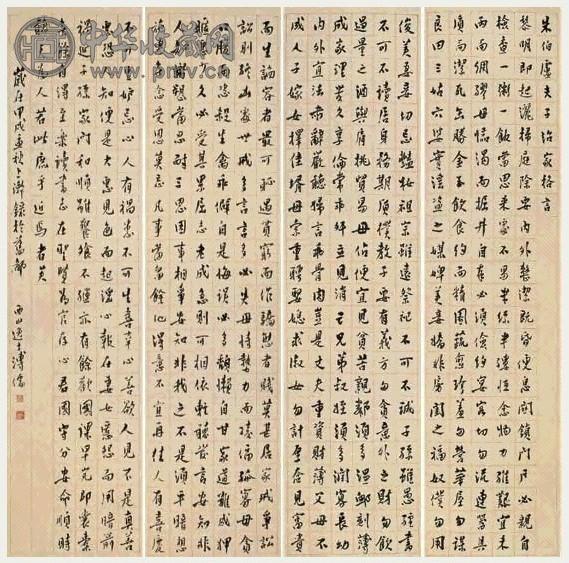 中华收藏网
朱伯廬夫子治家格言
黎明即起灑掃庭除要內外整潔既昏便息關鎖門戶必親自
檢查一粥一飯當思來處不易半絲半縷恆念物力維艱宜未
雨而綢繆毋臨渴而掘井自奉必須儉約宴客切勿流連器具
質而潔瓦缶勝金玉飲食約而精園蔬愈珍羞勿營華屋勿謀
良田三姑六婆實淫盜之媒婢美妾嬌非閨房之福奴僕勿用
俊美妻妾切忌豔妝祖宗雖遠祭祀不可不誠子孫雖愚經書
不可不讀居身務期質樸教子要有義方勿貪意外之財勿飲
過量之酒與肩挑貿易毋佔便宜見貧苦親鄰須多溫卹刻薄
成家理無久享倫常乖舛立見消亡兄弟叔姪須多潤寡長幼
內外宜法肅辭嚴聽婦言乖骨肉豈是丈夫重資財薄父母不
成人子嫁女擇佳壻毋索重聘娶媳求淑女勿計厚奩見富貴
而生諂容者最可恥遇貧窮而作驕態者賤莫甚居家戒爭訟
訟則終凶處世戒多言言多必失毋恃勢力而凌逼孤寡毋貪
口腹而恣殺生禽乖僻自是悔誤必多頹惰自甘家道難成狎
暱惡少久必受其累屈志老成急則可相依輕聽發言安知非
人之譖愬當忍耐三思因事相爭安知非我之不是須平心暗想
施惠無念受恩莫忘凡事當留餘地得意不宜再往人有喜慶
不可生妒忌心人有禍患不可生喜幸心善欲人見不是真善
惡恐人知便是大惡見色而起淫心報在妻女匿怨而用暗箭
禍延子孫家門和順雖饔飧不繼亦有餘歡國課早完即囊橐
無餘自得至樂讀書志在聖賢為官存心君國守分安命順時
聽天為人若此庶乎近焉者矣
歲在甲戌孟秋上澣錄於舊都 西山逸士溥儒